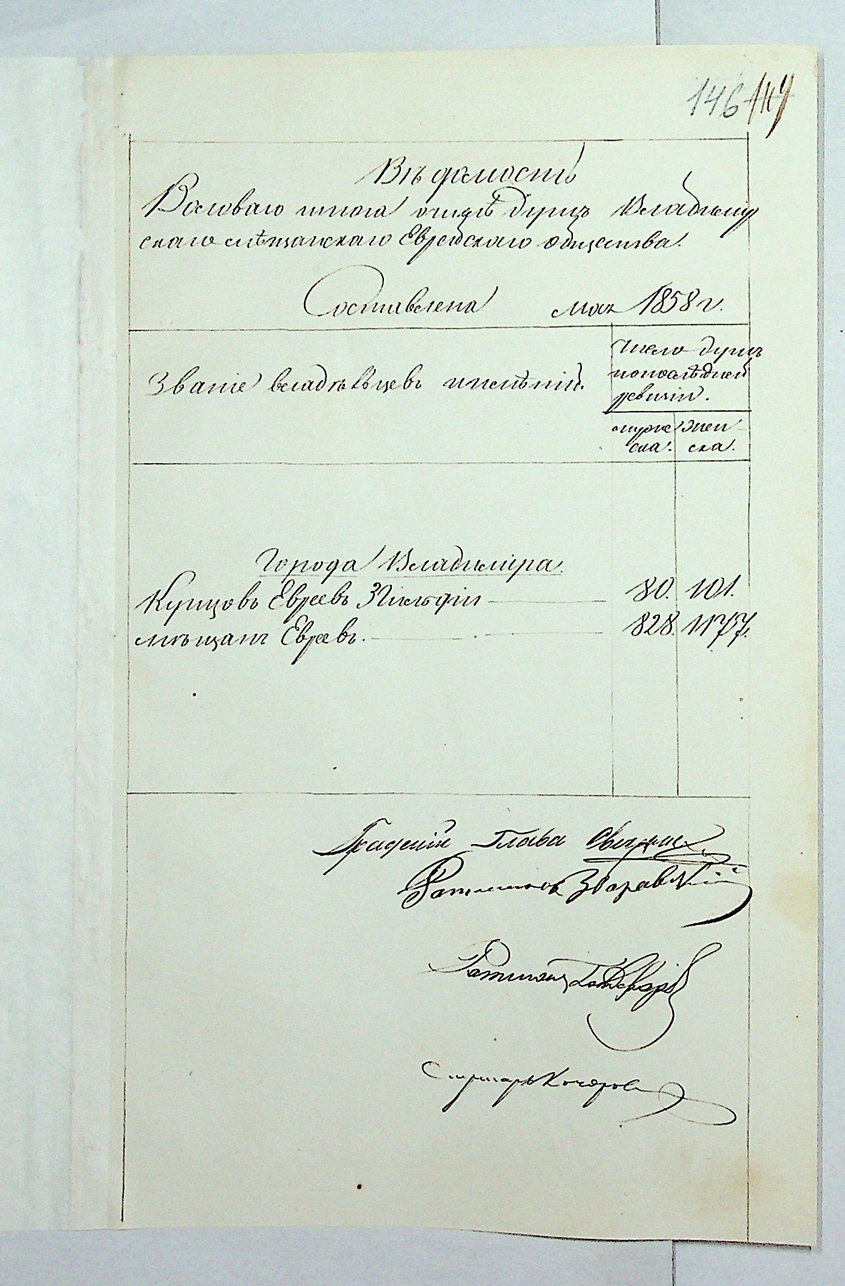 146 147
Вѣдомость
Валоваго итога о числѣ душъ Владимір
скаго мѣщанскаго Еврейскаго общества.
Составлена мая 1858 г.
Званіе владѣльцевъ имѣній.
Число душъ
по послѣдней
ревизіи.
мужес
ска.
женс
ска.
Города Владиміра
Купцовъ Евреевъ 3 Гильдіи 80. 101.
мѣщанъ Евреевъ. 828. 1177.
Градскій Глава
Ратманъ
Ратманъ